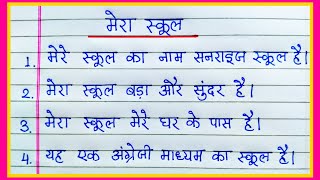 मेरा स्कूल
1. मेरे स्कूल का नाम सनराइज स्कूल है।
2. मेरा स्कूल बड़ा और सुंदर है।
3. मेरा स्कूल मेरे घर के पास है।
4. यह एक अंग्रेजी माध्यम का स्कूल है।